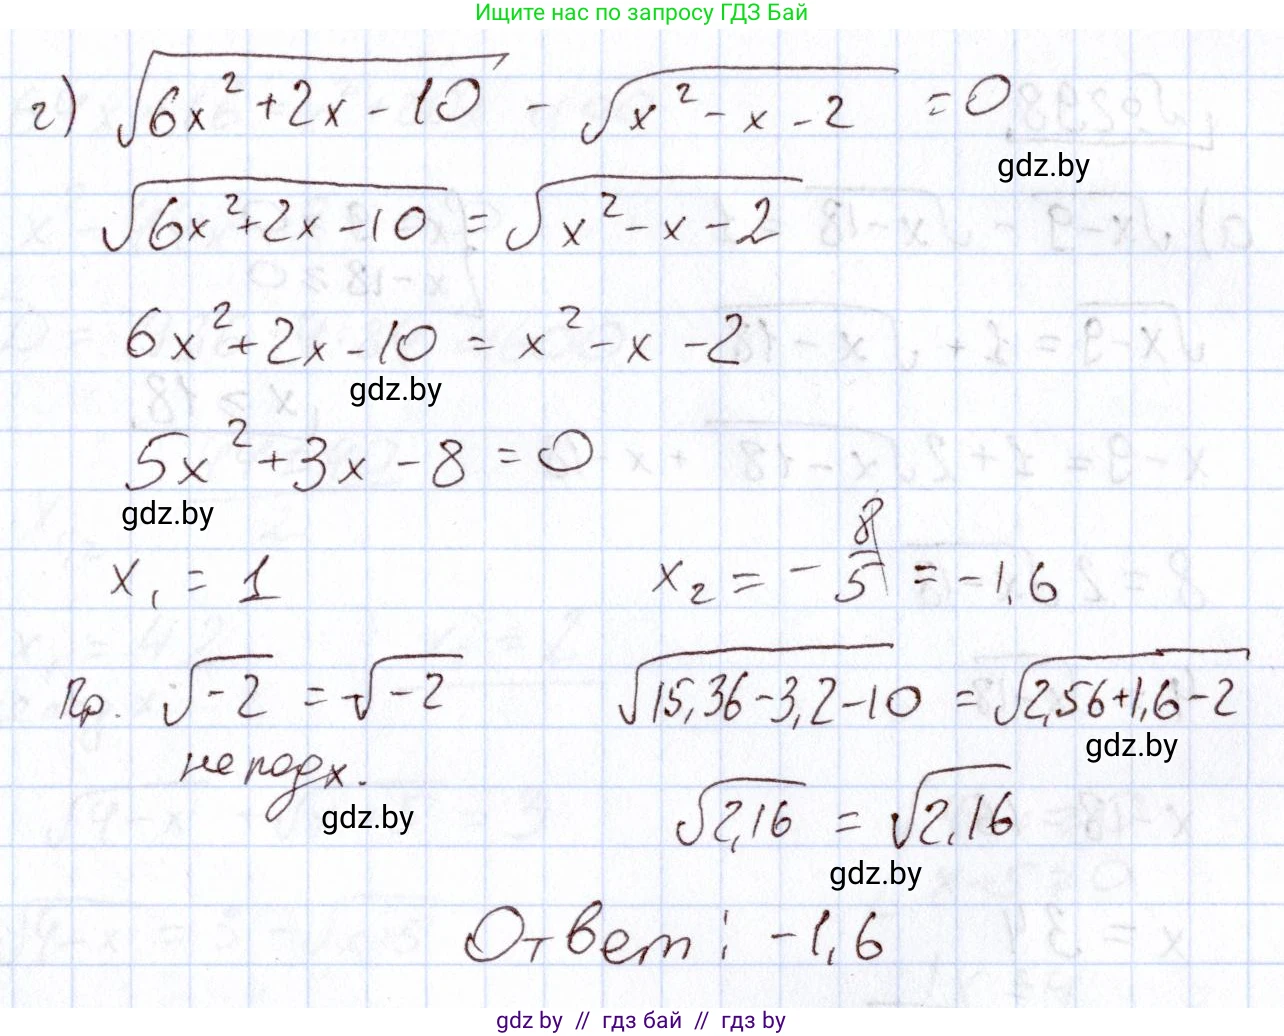 Ищите нас по запросу ГДЗ Бай
г) √(6x² + 2x - 10) - √(x² - x - 2) = 0
gdz.by
√(6x² + 2x - 10) = √(x² - x - 2)
6x² + 2x - 10 = x² - x - 2
gdz.by
5x² + 3x - 8 = 0
gdz.by
x₁ = 1 x₂ = - 8/5 = -1,6
Пр. √-2 = √-2 √(15,36 - 3,2 - 10) = √(2,56 + 1,6 - 2)
не подх. gdz.by
gdz.by
√2,16 = √2,16
gdz.by
Ответ: -1,6
gdz.by // гдз бай // гдз by